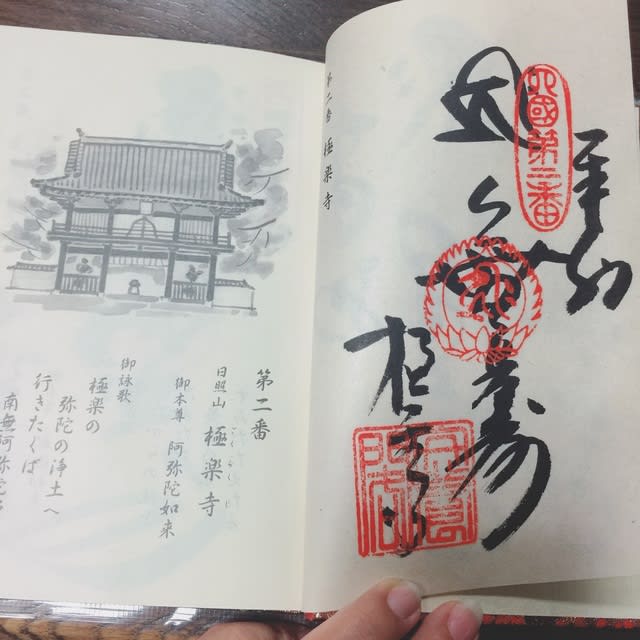 奉納
四國第二番
極楽寺
第二番 極楽寺
第二番
日照山 極楽寺
ごくらくじ
御本尊 阿弥陀如来
御詠歌
極楽の
弥陀の浄土へ
行きたくば
南無阿弥陀